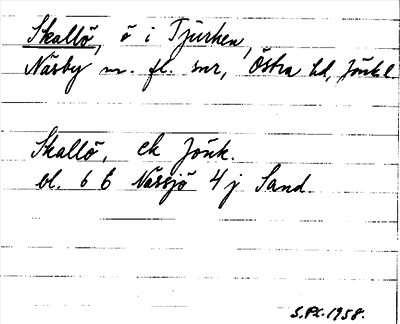 Skallö, ö i Tjurken,
Näsby m. fl. snr, Östra hd, Jönk l.
Skallö, ek Jönk.
bl. 6 E Nässjö 4 j Sand.
S.PX.1958.